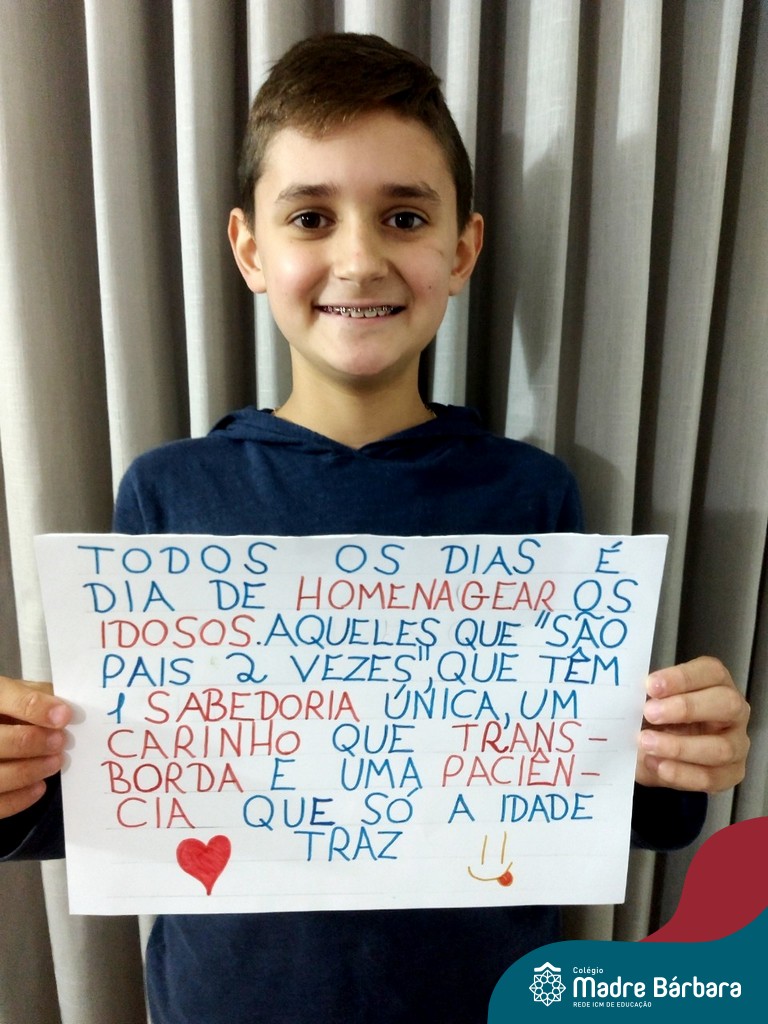 TODOS OS DIAS É
DIA DE HOMENAGEAR OS
IDOSOS. AQUELES QUE "SÃO
PAIS 2 VEZES", QUE TÊM
1 SABEDORIA ÚNICA, UM
CARINHO QUE TRANS-
BORDA E UMA PACIÊN-
CIA QUE SÓ A IDADE
TRAZ
Colégio
Madre Bárbara
REDE ICM DE EDUCAÇÃO